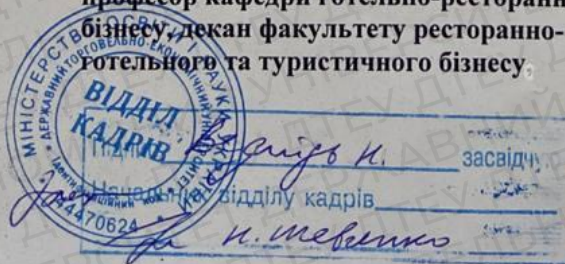 професор кафедри готельно-ресторанн
бізнесу, декан факультету ресторанно-
готельного та туристичного бізнесу
МІНІСТЕРСТВО ОСВІТИ І НАУКИ УКРАЇНИ
ДЕРЖАВНИЙ ТОРГОВЕЛЬНО-ЕКОНОМІЧНИЙ УНІВЕРСИТЕТ
ВІДДІЛ
КАДРІВ
Ідентифікаційний код
44470624
Підпис Н. засвідчу
Начальник відділу кадрів
Н. Шевленко